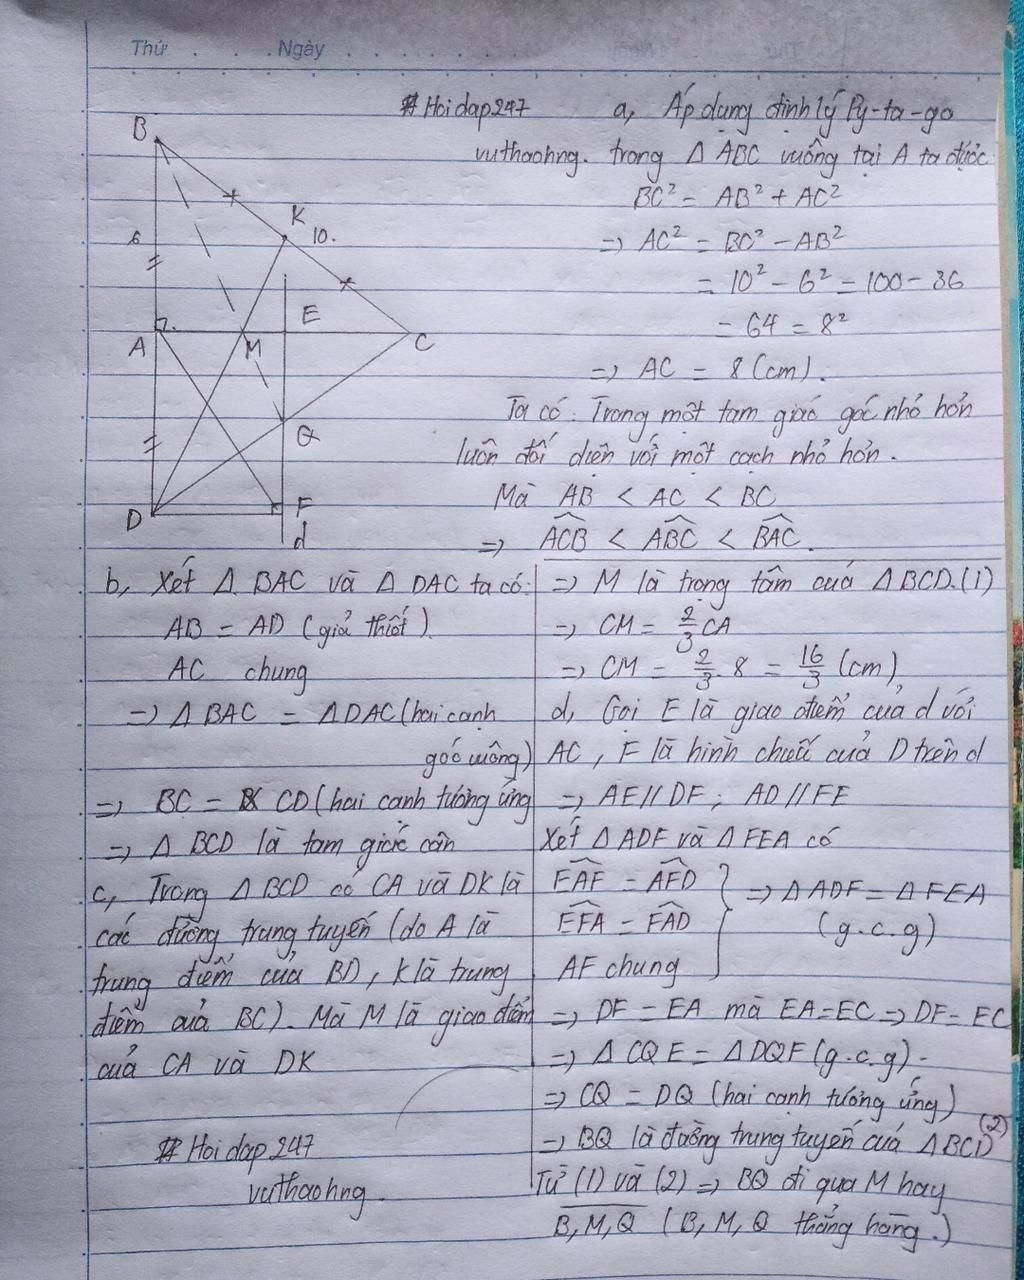 Thứ . . . Ngày . . . . . . .
#Hoidap247
vuthaohng.
B
K
6
10.
E
A
M
C
Q
D
F
d
a, Áp dụng định lý Py-ta-go
trong Δ ABC vuông tại A ta được
BC² = AB² + AC²
=> AC² = BC² - AB²
= 10² - 6² = 100 - 36
= 64 = 8²
=> AC = 8 (cm).
Ta có: Trong một tam giác góc nhỏ hơn
luôn đối diện với một cạch nhỏ hơn.
Mà AB < AC < BC
=> \widehat{ACB} < \widehat{ABC} < \widehat{BAC}.
b, Xét Δ BAC và Δ DAC ta có:
AB = AD (giả thiết)
AC chung
=> Δ BAC = Δ DAC (hai cạnh
góc vuông)
=> BC = CD (hai cạnh tương ứng
=> Δ BCD là tam giác cân
c, Trong Δ BCD có CA và DK là
các đường trung tuyến (do A là
trung điểm của BD, K là trung
điểm của BC). Mà M là giao điểm
của CA và DK
#Hoidap247
vuthaohng.
=> M là trọng tâm của Δ BCD.(1)
=> CM = 2/3 CA
=> CM = 2/3 . 8 = 16/3 (cm)
d, Gọi E là giao điểm của d với
AC, F là hình chiếu của D trên d
=> AE // DF ; AD // FE
Xét Δ ADF và Δ FEA có
\widehat{EAF} = \widehat{AFD}
\widehat{EFA} = \widehat{FAD}
AF chung
=> Δ ADF = Δ FEA
(g.c.g)
=> DF = EA mà EA = EC => DF = EC
=> Δ CQE = Δ DQF (g.c.g).
=> CQ = DQ (hai cạnh tương ứng)
=> BQ là đường trung tuyến của Δ BCD (2)
Từ (1) và (2) => BQ đi qua M hay
\overline{B, M, Q} (B, M, Q thẳng hàng.)